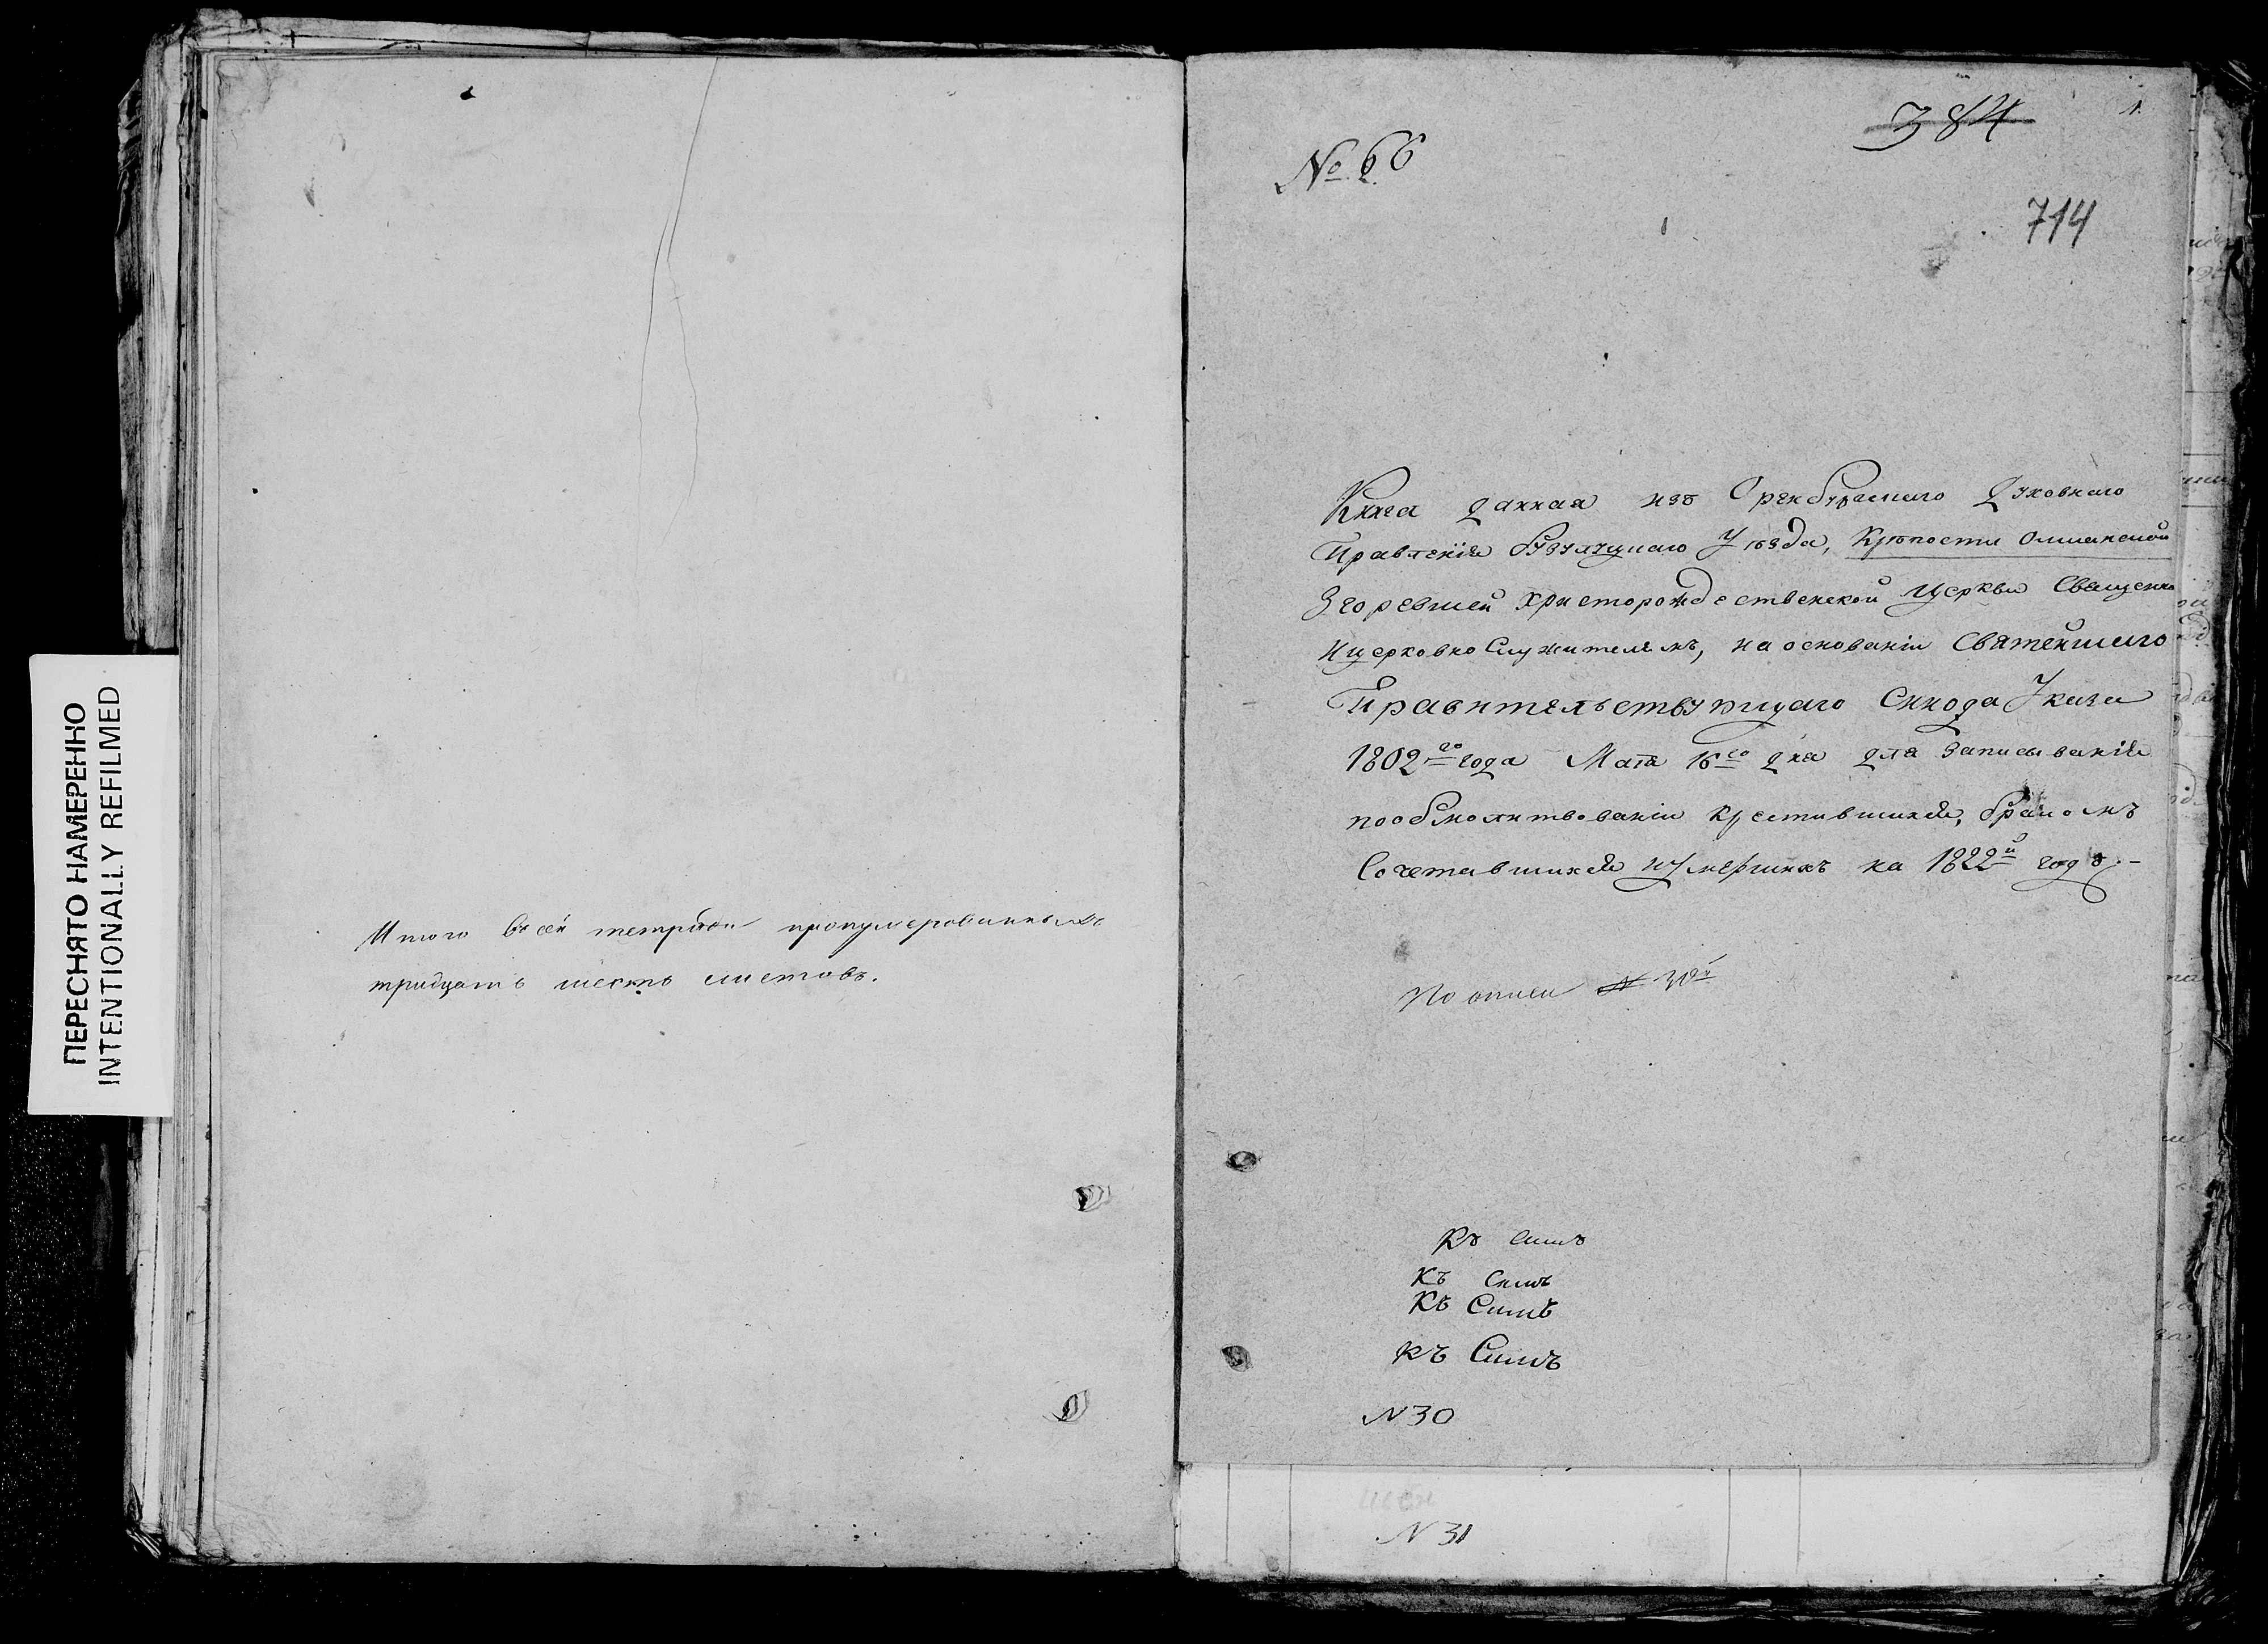 ПЕРЕСНЯТО НАМЕРЕННО
INTENTIONALLY REFILMED
Итого въ сей тетради пронумерованныхъ
тридцать шесть листовъ.
1.
384
№ 66
714
Книга данная изъ Оренбургскаго Духовнаго
Правленія Бузулуцкаго Уѣзда, Крѣпости Олшанской
Згоревшей Христорождественской Церкви Священно
Ицерковно Служителямъ, на основаніи Святейшаго
Правительствующаго Синода Указа
1802го года Маія 16го дня для записыванія
пообмолитвованіи крестившихся, бракомъ
Сочетавшихся иумершихъ на 1822й годъ. -
По описи № 30й
Къ Симъ
Къ Симъ
Къ Симъ
Къ Симъ
N 30
N 31